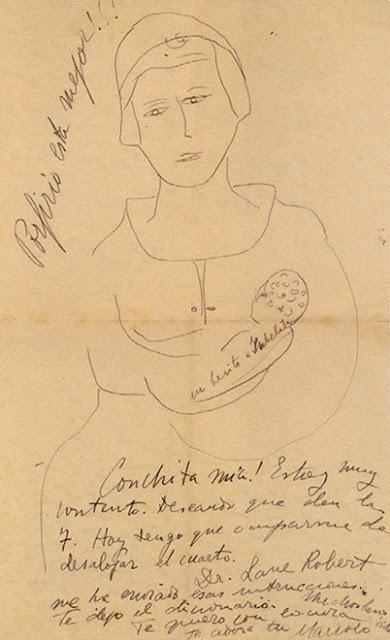 Porfirio está mejor!!!
un besito a
Conchita mía! Estoy muy
contento. Deseando que den las
7. Hoy tengo que ocuparme de
desalojar el cuarto.
Dr. Lane Robert
me ha enviado esas instrucciones.
Te dejo el diccionario. Muchos besos
Te quiero con locura
Te adora tu